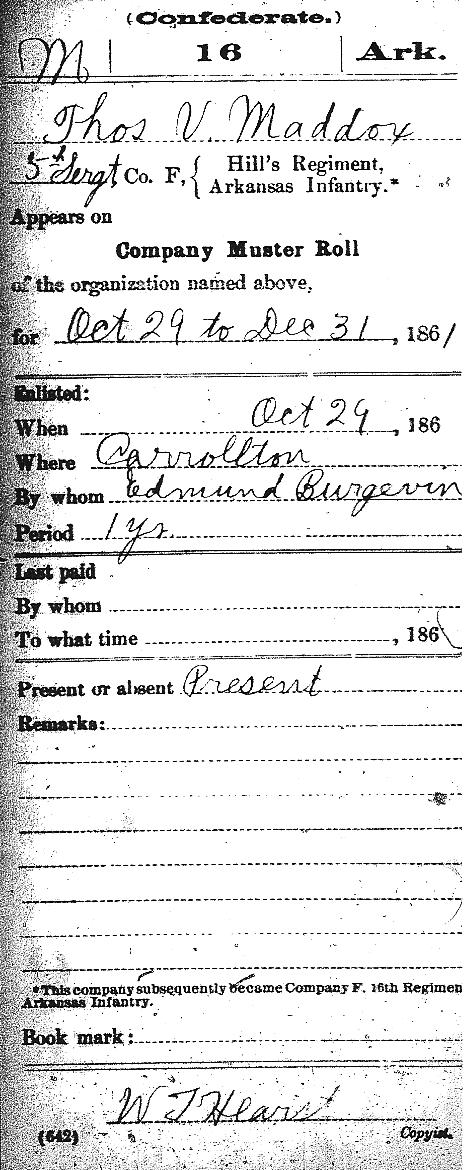 (Confederate.)
M | 16 | Ark.
Thos V. Maddox
5th Sergt Co. F, { Hill's Regiment,
Arkansas Infantry.*
Appears on
Company Muster Roll
of the organization named above,
for Oct 29 to Dec 31, 1861
Enlisted:
When Oct 29, 186
Where Carrollton
By whom Edmund Burgevin
Period 1 yr.
Last paid
By whom
To what time , 186
Present or absent Present
Remarks:
*This company subsequently became Company F. 16th Regimen
Arkansas Infantry.
Book mark:
W T Hearst
(642) Copyist.